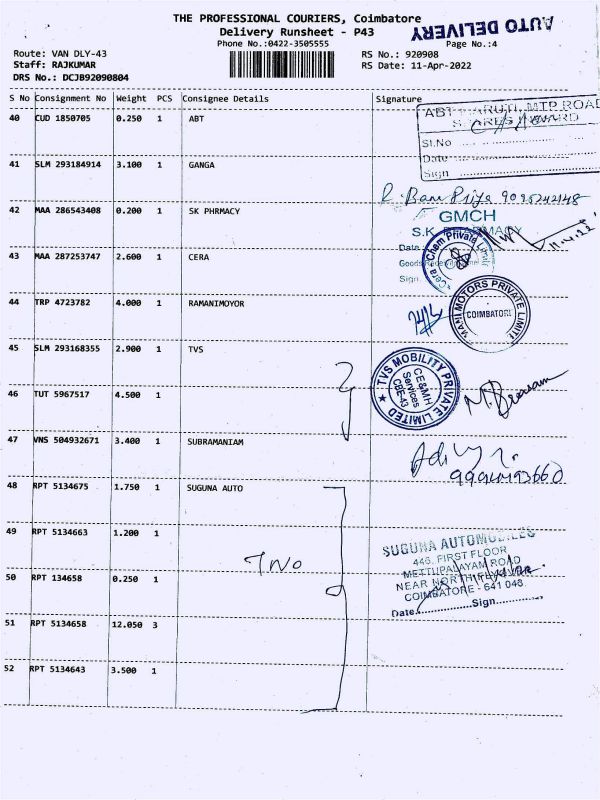 THE PROFESSIONAL COURIERS, Coimbatore
AUTO DELIVERY
Delivery Runsheet - P43
Phone No.:0422-3505555
Page No.:4
Route: VAN DLY-43
RS No.: 920908
Staff: RAJKUMAR
RS Date: 11-Apr-2022
DRS No.: DCJB92090804
S No Consignment No Weight PCS Consignee Details Signature
40 CUD 1850705 0.250 1 ABT
ABT MARUTI, MTP ROAD
Sl.No
Date
Sign
41 SLM 293184914 3.100 1 GANGA
42 MAA 286543408 0.200 1 SK PHRMACY
GMCH
S.K. PHARMACY
Date
11.4.22
43 MAA 287253747 2.600 1 CERA
Cera Chem Private Limit
Goods
Sign
44 TRP 4723782 4.000 1 RAMANIMOYOR
MANI MOTORS PRIVATE LIMITE
COIMBATORE
45 SLM 293168355 2.900 1 TVS
TVS MOBILITY PRIVATE LIMITED
CE&MH
Services
CBE-43
46 TUT 5967517 4.500 1
47 VNS 504932671 3.400 1 SUBRAMANIAM
48 RPT 5134675 1.750 1 SUGUNA AUTO
49 RPT 5134663 1.200 1
SUGUNA AUTOMOBILES
446, FIRST FLOOR
METTUPALAYAM ROAD
NEAR NORTH FLYOVER
COIMBATORE - 641 043
Date Sign
50 RPT 134658 0.250 1
51 RPT 5134658 12.050 3
52 RPT 5134643 3.500 1